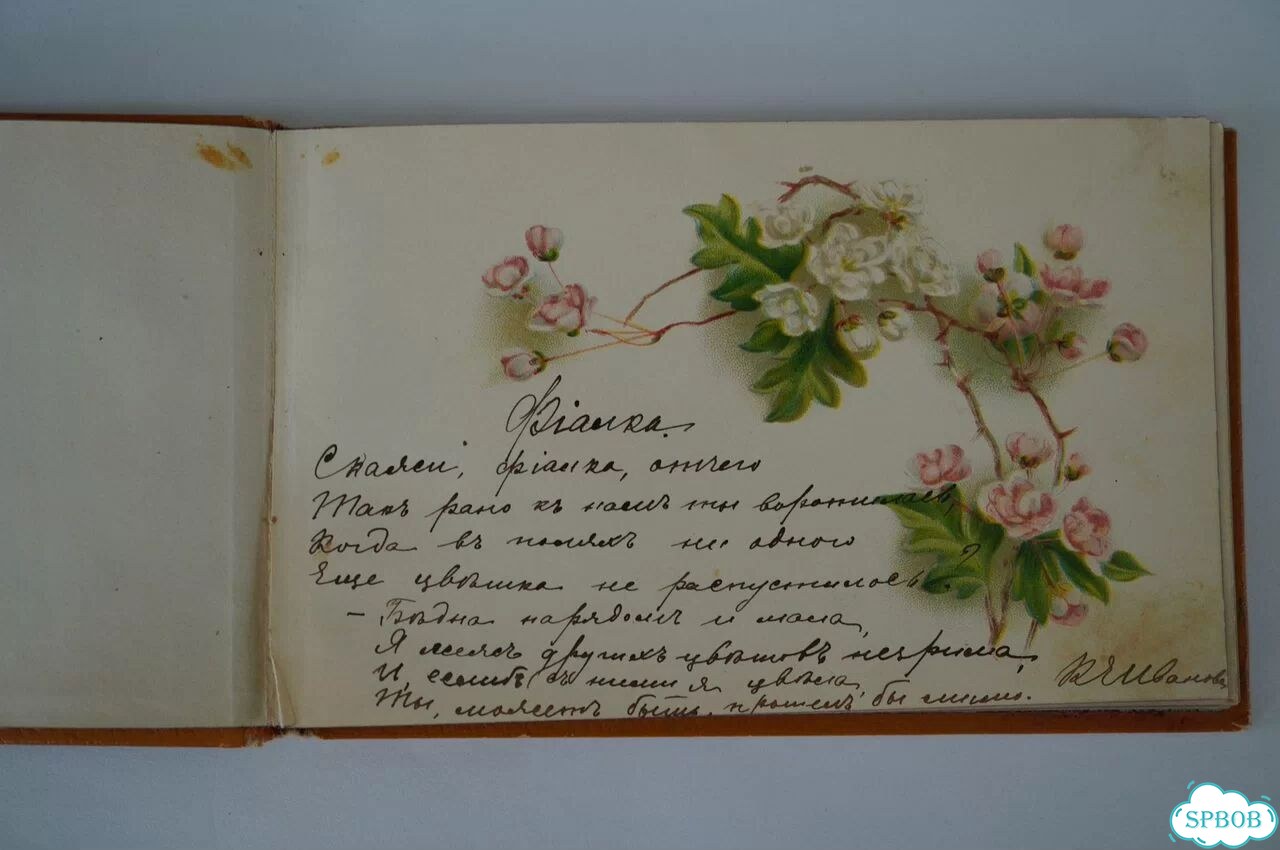 Фіалка.
Скажи, фіалка, отчего
Такъ рано къ намъ ты воротилась,
Когда въ поляхъ ни одного
Еще цвѣтка не распустилось?
- Бѣдна нарядомъ и мала,
Я межъ другихъ цвѣтовъ незрима,
И, еслибъ съ ними я цвѣла,
Ты, можетъ быть, прошелъ бы мимо.
Иванов
SPBOB